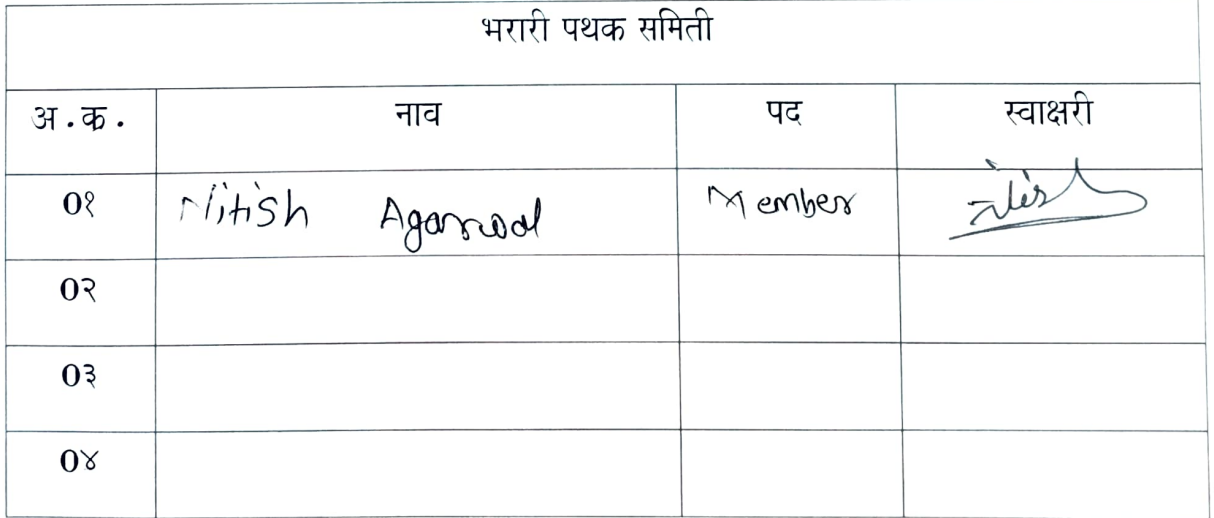 भरारी पथक समिती
अ.क्र. नाव पद स्वाक्षरी
०१ Nitish Agarwal Member
०२
०३
०४